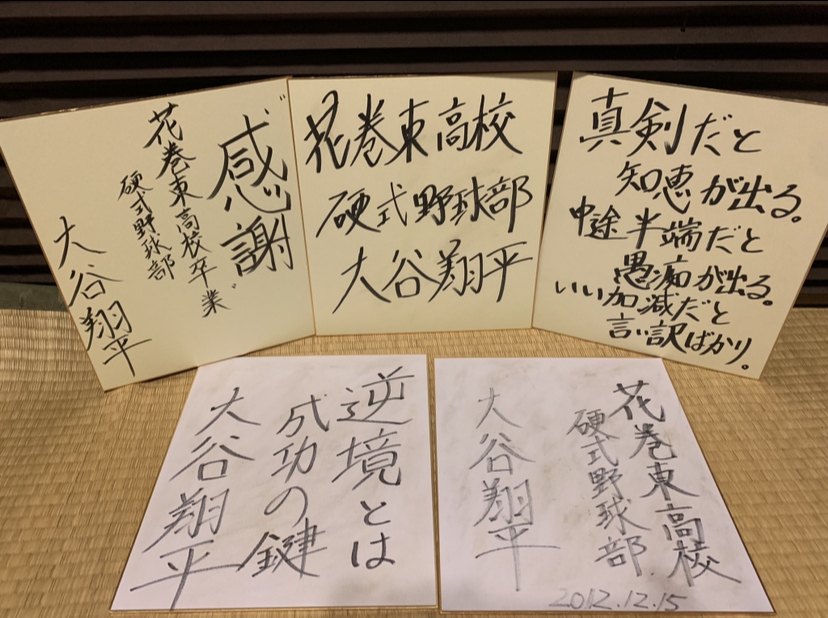 "感謝
花巻東高校卒業"
硬式野球部
大谷翔平
花巻東高校
硬式野球部
大谷翔平
真剣だと
知恵が出る。
中途半端だと
愚痴が出る。
いい加減だと
言い訳ばかり。
逆境とは
成功の鍵
大谷翔平
花巻東高校
硬式野球部
大谷翔平
2012.12.15